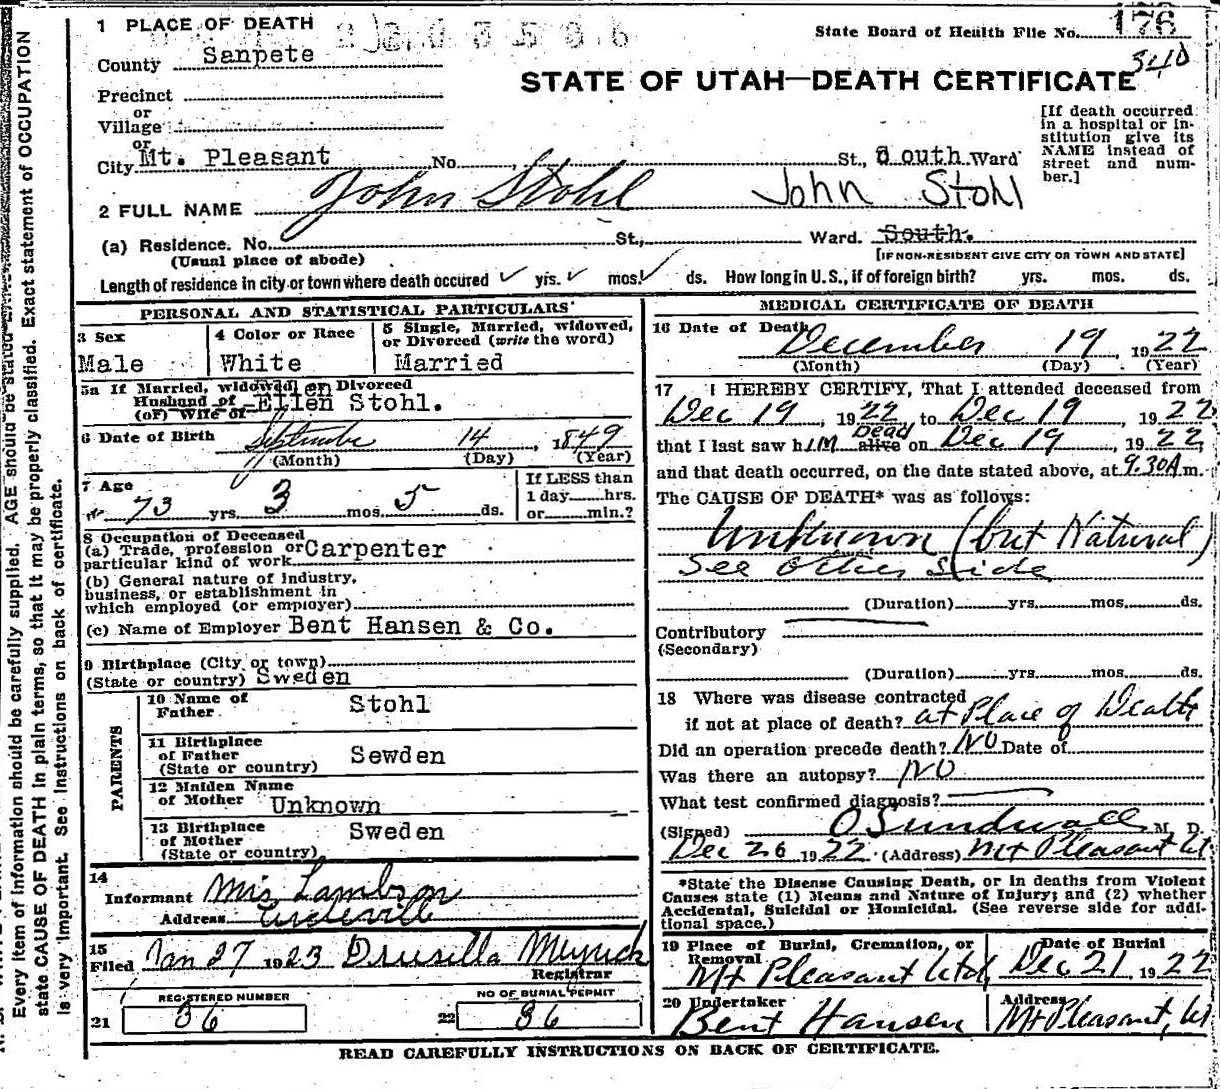 1 PLACE OF DEATH
State Board of Health File No. 176
340
County Sanpete
STATE OF UTAH—DEATH CERTIFICATE
Precinct
or
Village
or
City Mt. Pleasant No. St., South Ward
[If death occurred in a hospital or in-
stitution give its
NAME instead of
street and num-
ber.]
2 FULL NAME John Stohl John Stohl
(a) Residence. No. St., Ward. South.
(Usual place of abode)
[IF NON-RESIDENT GIVE CITY OR TOWN AND STATE]
Length of residence in city or town where death occured yrs. mos. ds. How long in U. S., if of foreign birth? yrs. mos. ds.
PERSONAL AND STATISTICAL PARTICULARS
3 Sex
Male
4 Color or Race
White
5 Single, Married, widowed,
or Divorced (write the word)
Married
5a If Married, widowed, or Divorced
Husband of Ellen Stohl.
(or) Wife of
6 Date of Birth September 14 1849
(Month) (Day) (Year)
7 Age
73 yrs. 3 mos. 5 ds.
If LESS than
1 day hrs.
or min.?
8 Occupation of Deceased
(a) Trade, profession or Carpenter
particular kind of work
(b) General nature of industry,
business, or establishment in
which employed (or employer)
(c) Name of Employer Bent Hansen & Co.
9 Birthplace (City or town)
(State or country) Sweden
PARENTS
10 Name of
Father Stohl
11 Birthplace
of Father Sewden
(State or country)
12 Maiden Name
of Mother Unknown
13 Birthplace
of Mother Sweden
(State or country)
14
Informant Mrs Lambson
Address Circleville
15
Filed Jan 27 1923 Drusilla Meyrick
Registrar
REGISTERED NUMBER
21 36
NO OF BURIAL PERMIT
22 36
MEDICAL CERTIFICATE OF DEATH
16 Date of Death
December 19 1922
(Month) (Day) (Year)
17 I HEREBY CERTIFY, That I attended deceased from
Dec 19, 1922 to Dec 19, 1922
that I last saw him alive Dead on Dec 19, 1922,
and that death occurred, on the date stated above, at 9.30A m.
The CAUSE OF DEATH* was as follows:
Unknown (but Natural)
See Other Side
(Duration) yrs. mos. ds.
Contributory
(Secondary)
(Duration) yrs. mos. ds.
18 Where was disease contracted
if not at place of death? at Place of Death
Did an operation precede death? No Date of
Was there an autopsy? No
What test confirmed diagnosis?
(Signed) O Sundwall M. D.
Dec 26 1922 (Address) Mt Pleasant Ut
*State the Disease Causing Death, or in deaths from Violent
Causes state (1) Means and Nature of Injury; and (2) whether
Accidental, Suicidal or Homicidal. (See reverse side for addi-
tional space.)
19 Place of Burial, Cremation, or
Removal
Mt Pleasant Utah
Date of Burial
Dec 21 1922
20 Undertaker
Bent Hansen
Address
Mt Pleasant, Ut
READ CAREFULLY INSTRUCTIONS ON BACK OF CERTIFICATE.
Every item of information should be carefully supplied. AGE should be stated
state CAUSE OF DEATH in plain terms, so that it may be properly classified. Exact statement of OCCUPATION
is very important. See instructions on back of certificate.